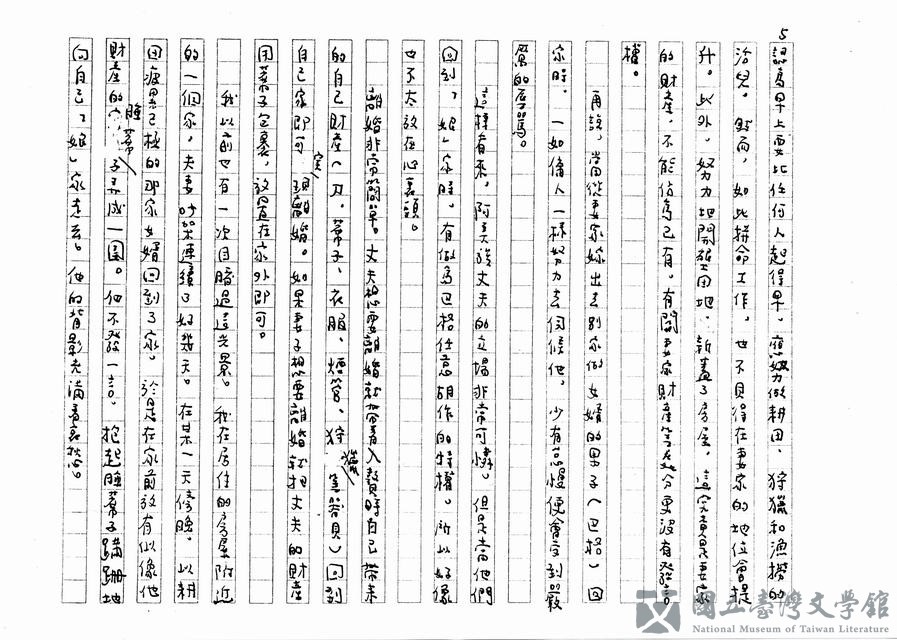 5
認為早上要比任何人起得早。應努力做耕田、狩獵和漁撈的
活兒。然而，如此拼命工作，也不見得在妻家的地位會提
升。此外，努力地開墾田地，新蓋了房屋，這究竟是妻家
的財產，不能佔為己有。有關妻家財產等處分更沒有發言
權。
再說，當從妻家嫁出去別家做女婿的男子（巴格）回
家時，一如傭人一樣努力去伺候他，少有怠慢便會受到嚴
厲的辱罵。
這樣看來，阿美族丈夫的立場非常可憐。但是當他們
回到「娘」家時，有做為巴格任意胡作的特權。所以好像
也不太放在心裏頭。
離婚非常簡單。丈夫想要離婚就帶著入贅時自己帶來
的自己財產（刀、蓆子、衣服、煙管、狩獵具器具）回到
自己家即可實現離婚。如果妻子想要離婚就把丈夫的財產
用蓆子包裹，放置在家外即可。
我以前也有一次目睹過這光景。我在居住的房屋附近
的一個家，夫妻吵架連續了好幾天。在某一天傍晚，以耕
田疲累已極的那家女婿回到了家。於是在家前放有似像他
財產的睡蓆子弄成一團。他不發一言，抱起睡蓆子蹣跚地
向自己「娘」家走去。他的背影充滿著哀愁。
國立臺灣文學館
National Museum of Taiwan Literature